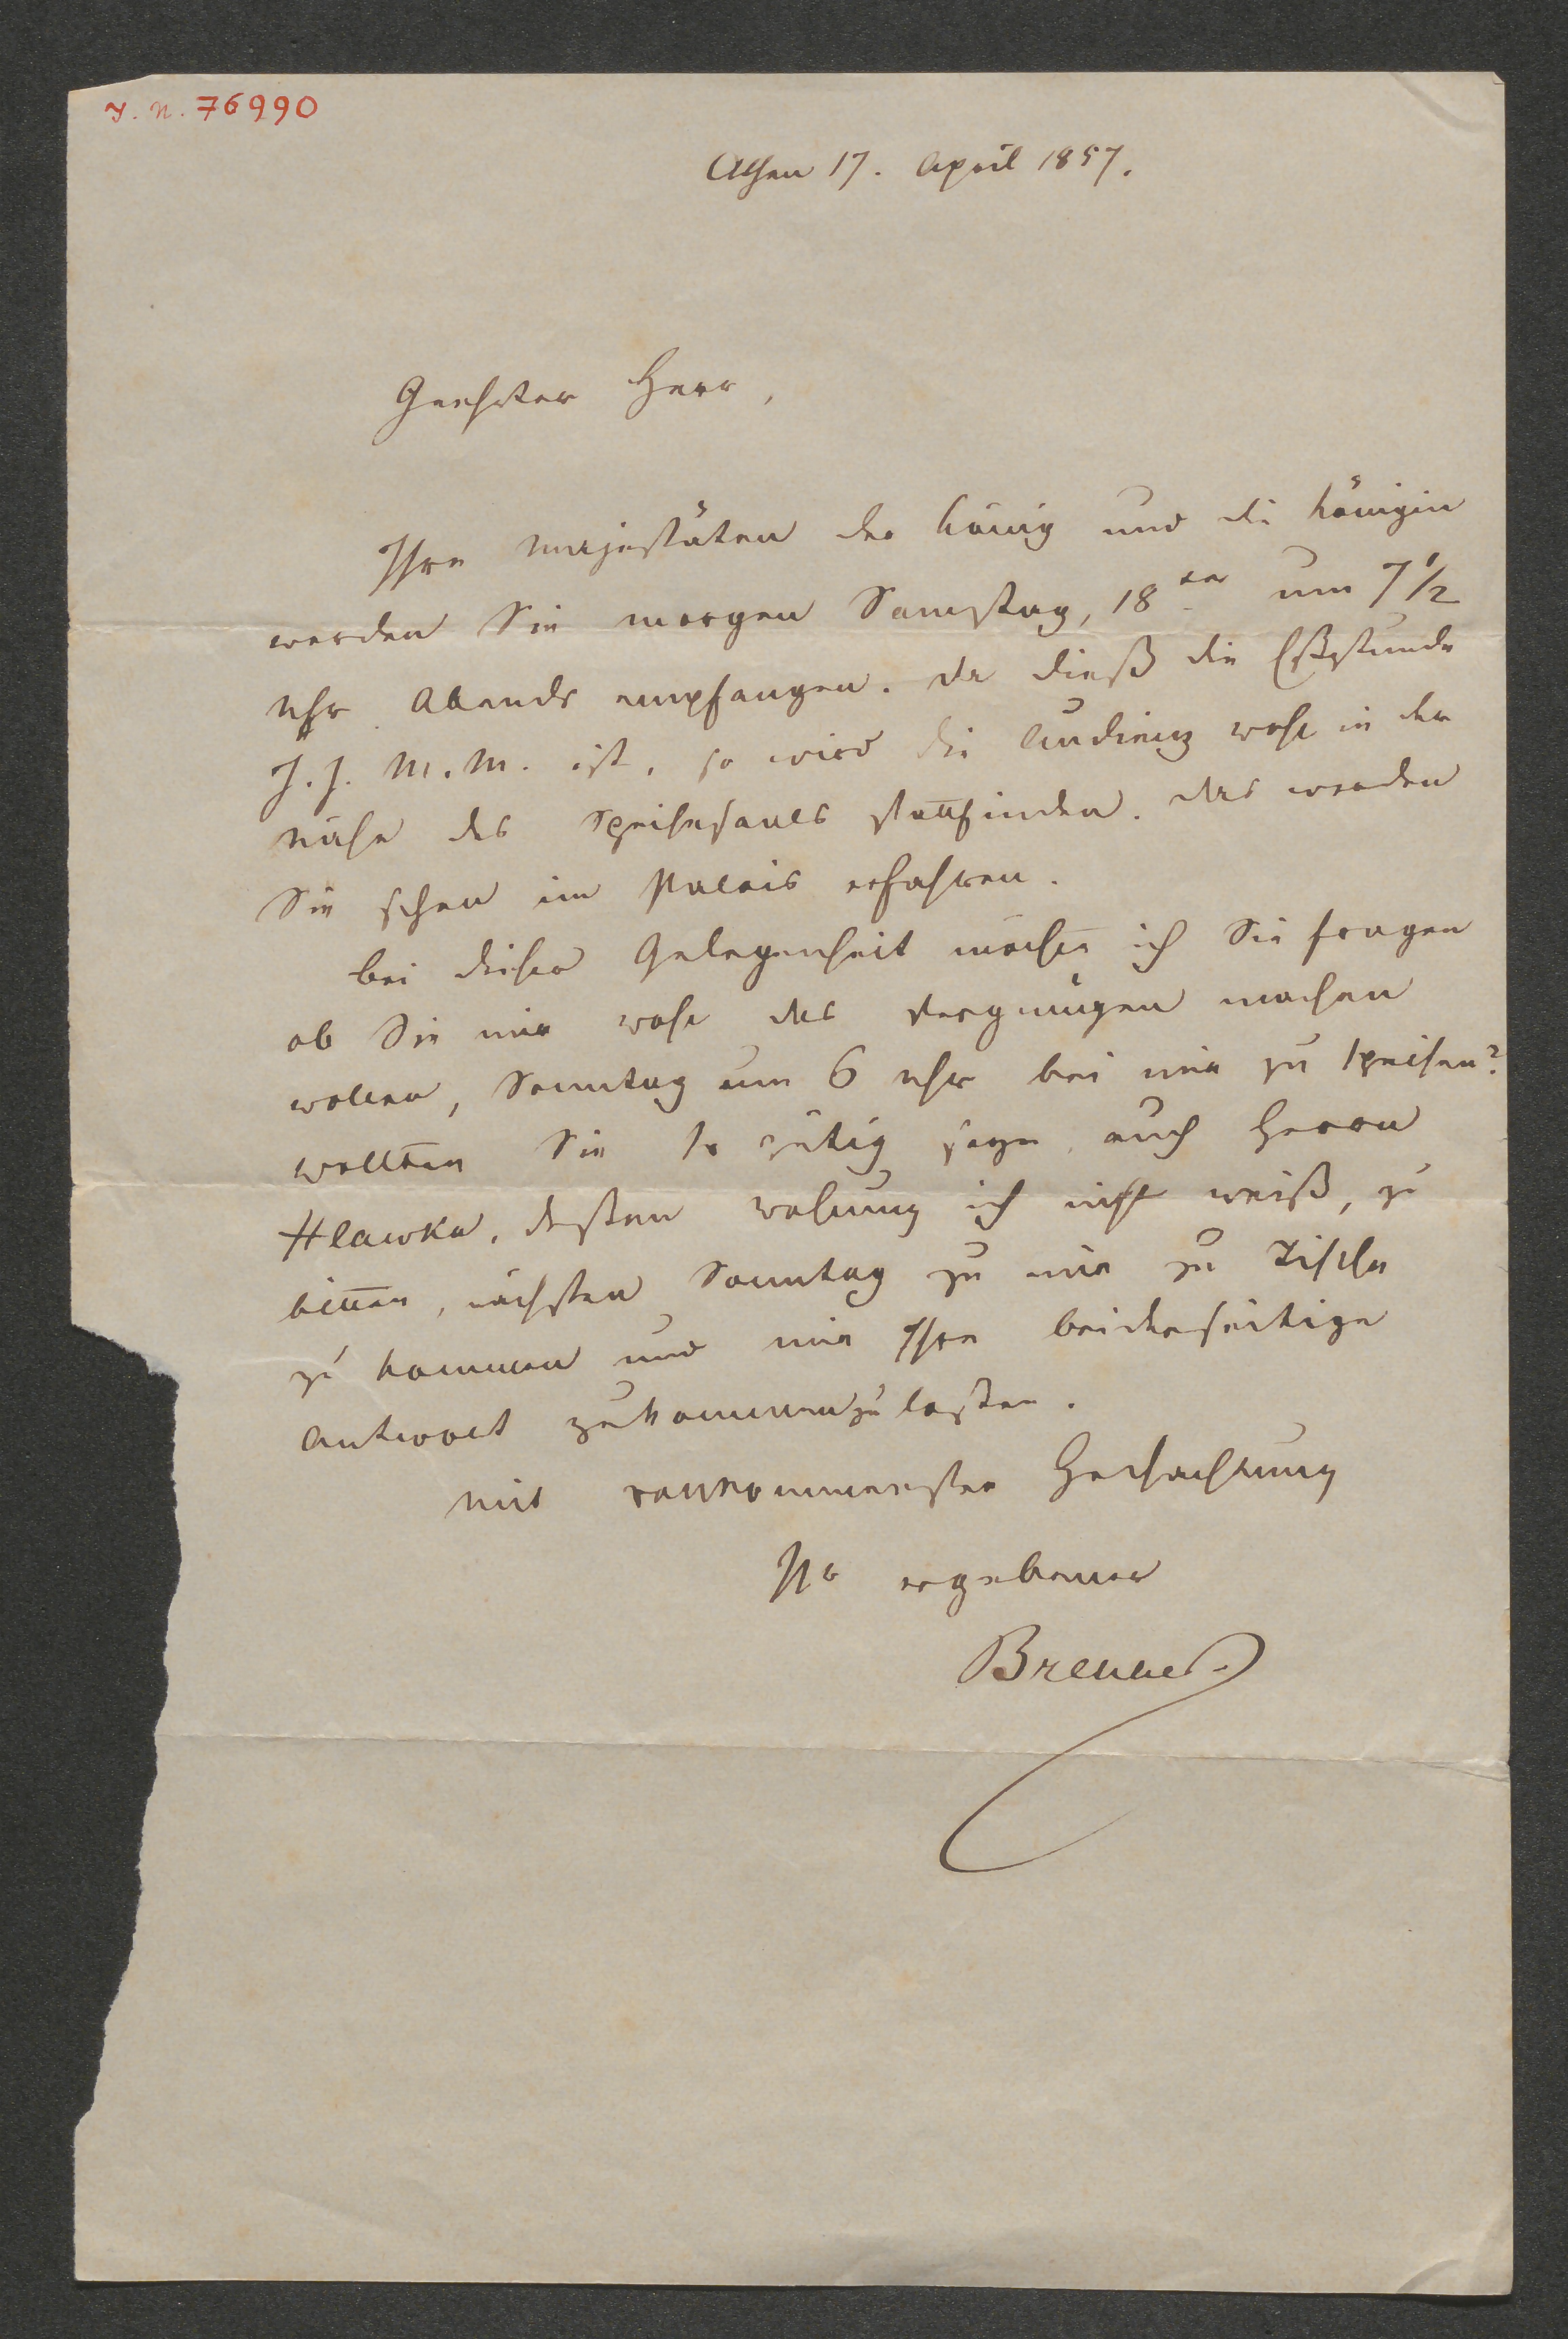 I. N. 76990
Athen 17. April 1857.
Geehrter Herr,
Ihre Majestäten der König und die Königin
werden Sie morgen Samstag, 18ten um 7 1/2
Uhr Abends empfangen. Da dieß die Eßstunde
I. I. M. M. ist, so wird die Audienz wohl in der
Nähe des Speisesaales stattfinden. Das werden
Sie schon im Palais erfahren.
Bei dieser Gelegenheit möchte ich Sie fragen
ob Sie mir wohl das Vergnügen machen
wollen, Sonntag um 6 Uhr bei mir zu speisen?
Wollten Sie so gütig seyn auch Herrn
Hlawka, dessen Wohnung ich nicht weiß, zu
bitten, nächsten Sonntag zu mir zu Tische
zu kommen und mir Ihre beiderseitige
Antwort zukommen zu lassen.
Mit vollkommenster Hochachtung
Ihr ergebener
Brenner